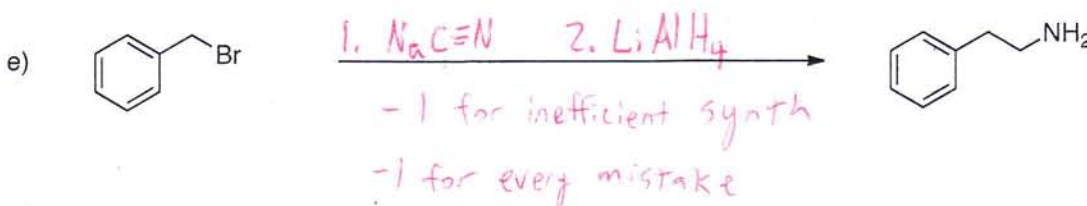 e)
Br
1. NaC≡N 2. LiAlH4
NH2
-1 for inefficient synth
-1 for every mistake